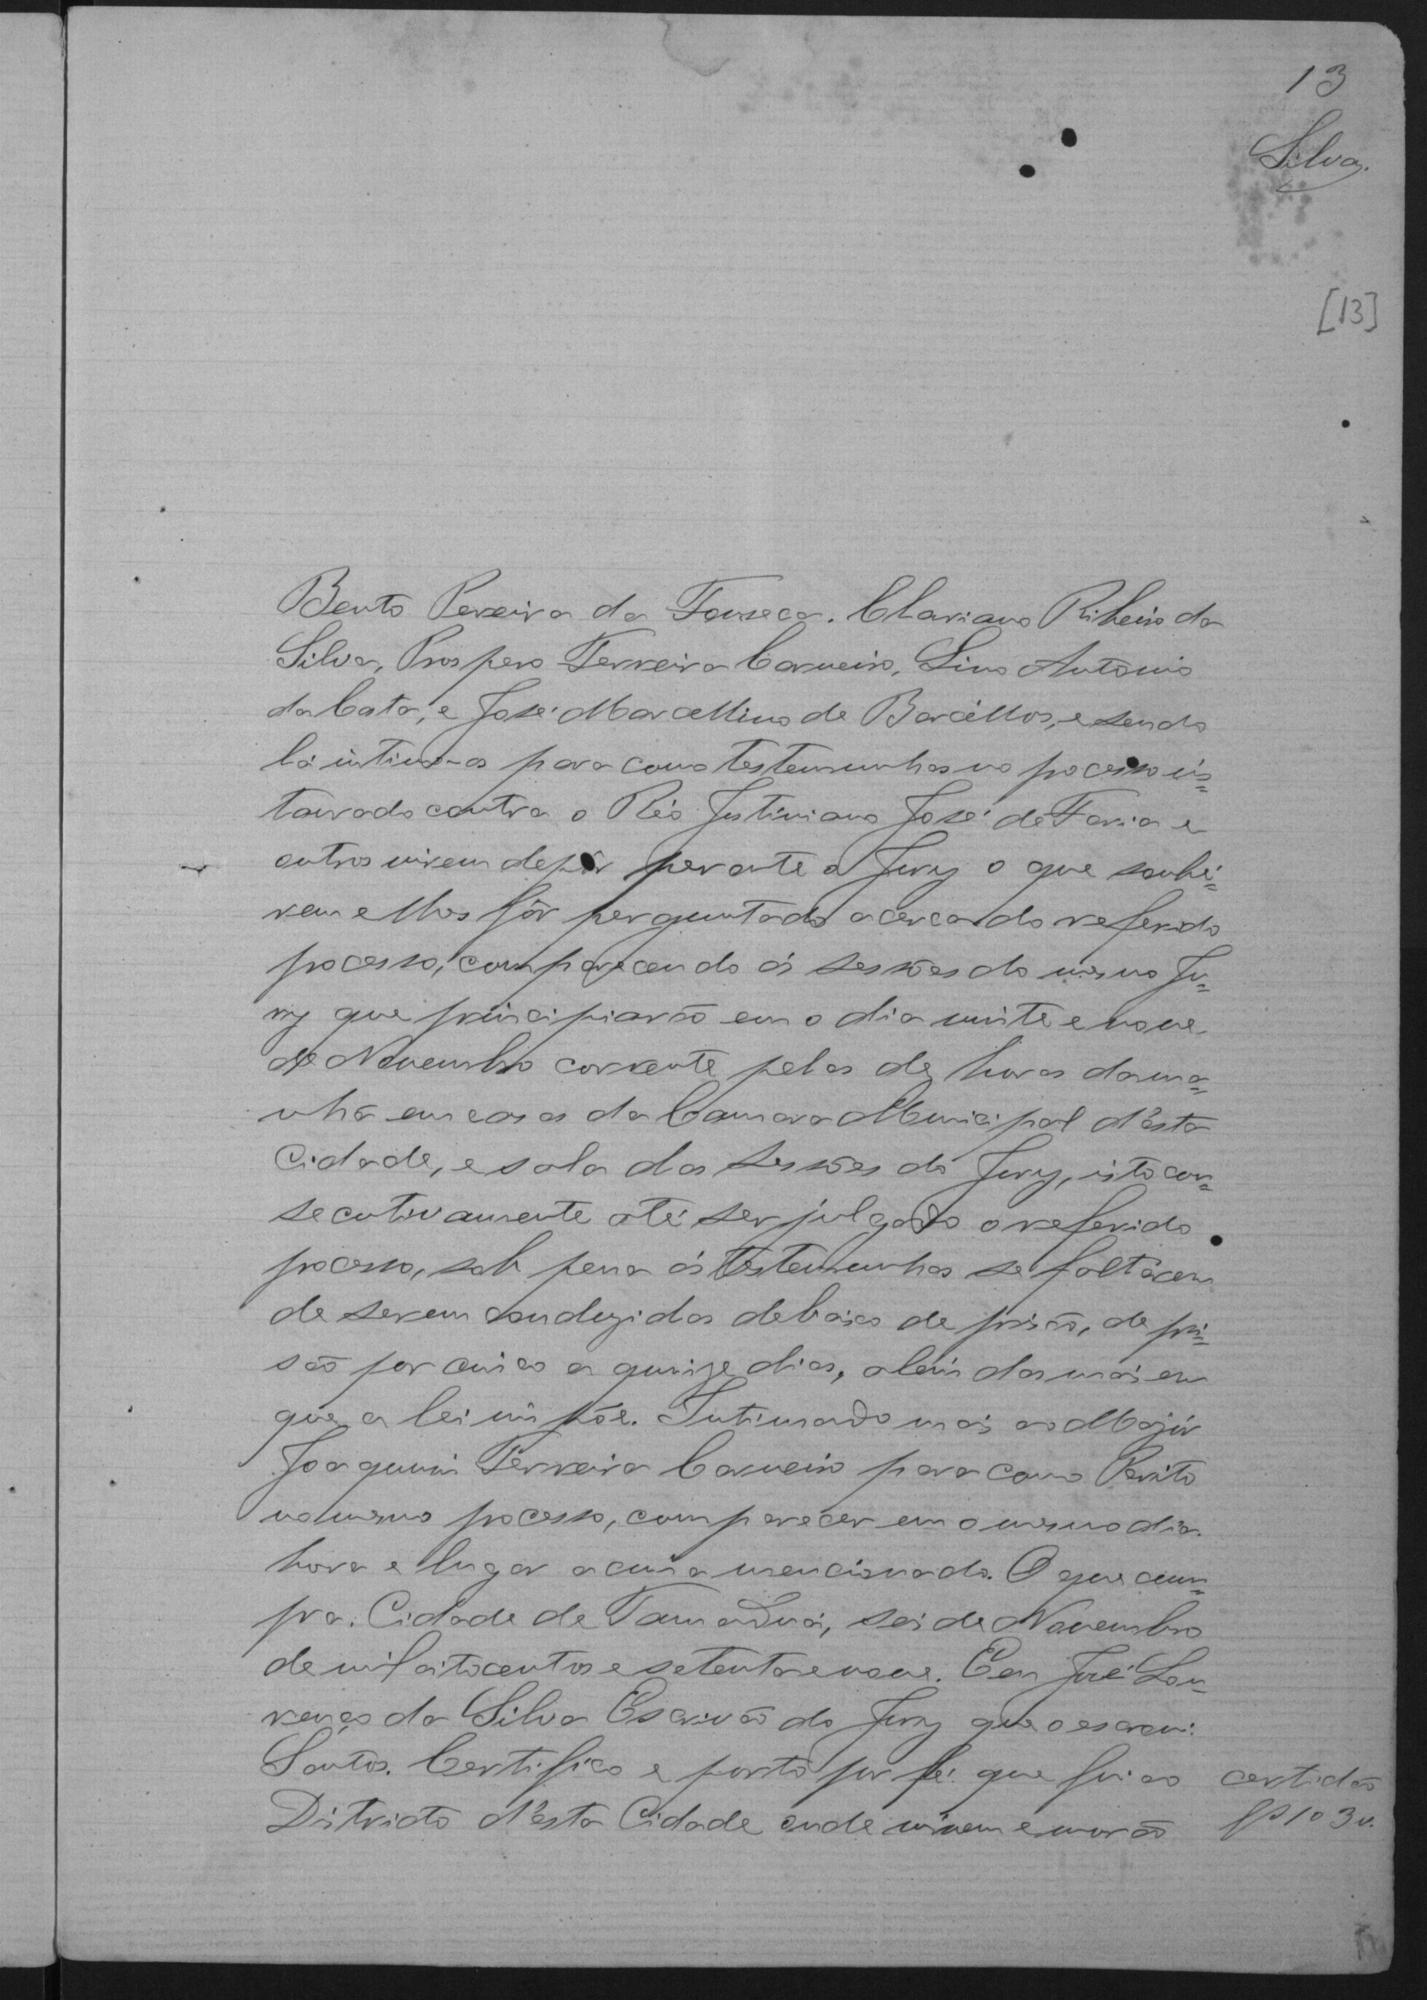 13
Silva.
[13]
Bento Pereira da Fonseca. Clariano Ribeiro da
Silva, Prospero Ferreira Carneiro, Lino Antonio
da Cata, e José Marcellino de Barcéllos, e sendo
lá intima-os para como testemunhas no pocesso ins=
taurado contra o Réo Justiniano José de Faria e
outros virem depôr perante o Jury o que soubé=
rem e lhes fôr perguntado acerca do referido
pocesso, comparecendo ás sessões do mesmo Ju=
ry que principiarão em o dia vinte e nove
de Novembro corrente pelas dez horas da ma=
nhã em casas da Camara Municipal d'esta
Cidade, e sala das sessões do Jury, isto con=
secutivamente até ser julgado o referido
pocesso, sob pena ás testemunhas se faltárem
de serem conduzidas debaixo de prisão, de pri=
são por cinco a quinze dias, além das mais em
que a lei impõe. Intimando mais ao Major
Joaquim Ferreira Carneiro para como Perito
no mesmo pocesso, comparecer em o mesmo dia.
hora e lugar acima mencionado. O que cum=
pra. Cidade de Tamanduá, seis de Novembro
de mil oitocentos e setenta e nove. Eu José Lou=
renço da Silva Escrivão do Jury que o escrevi.
Santos. Certifico e porto por fé que fui ao
Ditricto d'esta Cidade onde vivem e morão
certidão
fs 103 v.